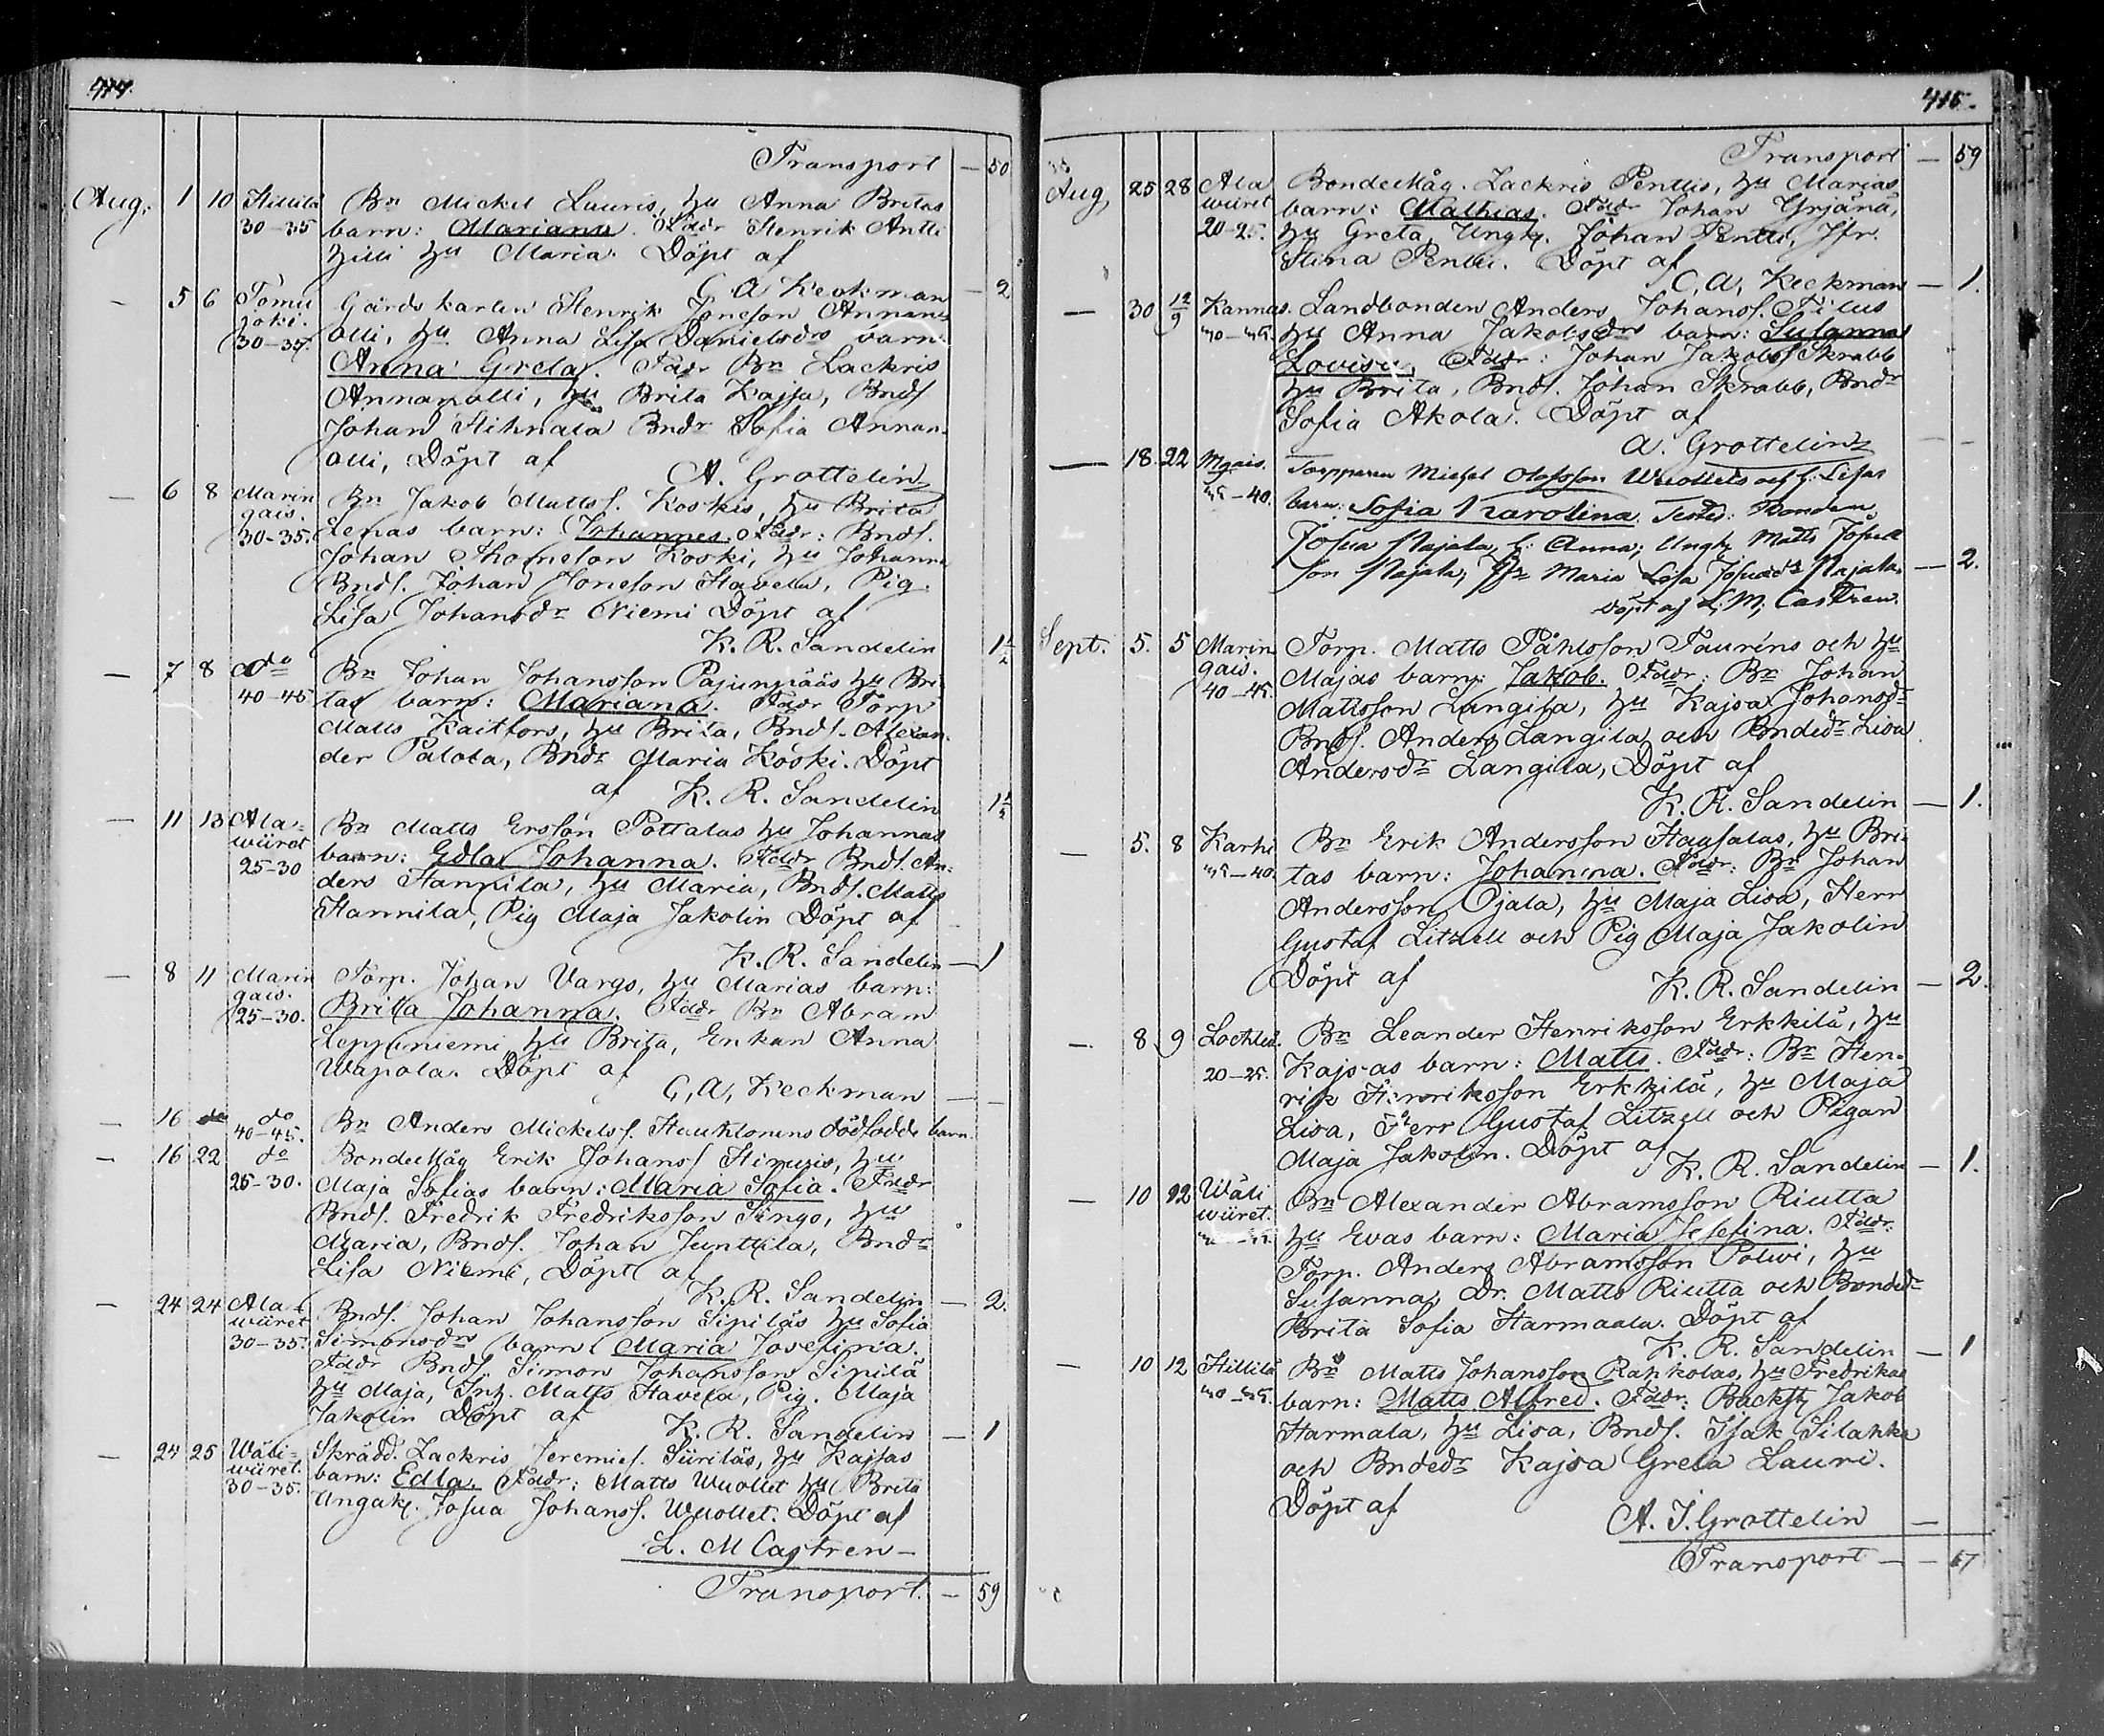 414.
Transport — 50
Aug. 1 10 Hillilä Bn Mickel Lauris, hu Anna Britas
30–35 barn: Mariana. Fadr Henrik Antti
zilli hu Maria. Döpt af
C A Keckman — 2
— 5 6 Tomu Gårdskarlen Henrik Jonsson Annan
joki. olli, hu Anna Lisa Danielsdrs barn:
30–35. Anna Greta. Fadr Bn Zackris
Annanolli, hu Brita Kajsa, Bnds.
Johan Hihnala Bndr Sofia Annan-
olli, Döpt af
A. Grottelin
— 6 8 Marin Bn Jakob Mattss. Koskis, hu Brita
gais. Lenas barn: Johannes. Fadr: Bnds.
30–35. Johan Thomsson Koski, hu Johanna
Bnds. Johan Jonsson Havela, Pig.
Lisa Johansdr Niemi Döpt af
K. R. Sandelin 1½
— 7 8 do Bn Johan Johansson Pajunpääs hu Bri
40–45 tas barn: Mariana. Fadr Torp
Matts Kaitfors, hu Brita, Bnds. Alexan-
der Palola, Bndr Maria Koski. Döpt
af K. R. Sandelin 1½
— 11 13 Ala= Bn Matts Ersson Pottalas hu Johannas
wiiret barn: Edla Johanna. Fadr Bnds. An-
25–30 ders Hannila, hu Maria, Bnds. Matts
Hannila, Pig Maja Jakolin Döpt af
K. R. Sandelin — 1
— 8 11 Marin Torp. Johan Vargs, hu Marias barn:
gais. Brita Johanna. Fadr Bn Abram
25–30. Leppiniemi hu Brita, Enkan Anna
Wapola. Döpt af
C, A, Keckman — —
— 16 do do Bn Anders Mickelss. Hautklorins dödfödde barn.
40–45.
— 16 22 do Bondemåg Erik Johanss Himzis, hu
25–30. Maja Sofias barn: Maria Sofia. Fadr
Bnds. Fredrik Fredriksson Singo, hu
Maria, Bnds. Johan Junttila, Bndr
Lisa Niemi, Döpt af
K. R. Sandelin — 2.
— 24 24 Ala= Bnds. Johan Johansson Sipiläs hu Sofia
wiiret Simonsdrs barn Maria Josefina.
30–35. Fadr Bnds. Simon Johansson Sipilä
hu Maja, Inh. Matts Havela, Pig. Maja
Jakolin Döpt af
K. R. Sandelin — 1
— 24 25 Wäli= Skrädd. Zackris Jeremiss. Siiriläs, hu Kajsas
wiiret. barn: Edla. Fadr: Matts Wuollet hu Brita
30–35. Ungak. Josua Johanss. Wuollet. Döpt af
L. M Castren —
Transport. — 59
415.
Transport — 59
Aug, 25 28 Ala Bondemåg. Zackris Penttis, hu Marias
wiiret barn: Mathias. Fadr Johan Yrjänä,
20–25. hu Greta, Ungk. Johan Pentti, Jfr.
Stina Pentti. Döpt af
C, A, Keckman — 1.
— 30 12/9 Kannas. Landbonden Anders Johanss. Filus
40–45. hu Anna Jakobsdrs barn: Susanna
Lovisa, Fadr: Johan Jakobss Skrabb
hu Brita, Bnds. Johan Skrabb, Bndr
Sofia Akola. Döpt af
A. Grottelin — —
— 18. 22 Mgais. Torpparen Michel Olofsson Wuollets och h. Lisas
35–40. barn: Sofia Karolina. Testes: Bonden
Josua Najala, h: Anna; Ungk Matts Josua
son Najala; Jfr Maria Lisa Josuadr Najala. — 2.
Döpt af L, M, Castren.
Sept. 5. 5 Marin Torp. Matts Påhlsson Taurens och hu
gais. Majas barn: Jakob. Fadr: Bn Johan
40–45. Mattsson Langila, hu Kajsa Johansdr
Bnds. Anders Langila och Bndedr Lisa
Andersdr Langila, Döpt af
K. R. Sandelin — 1.
— 5. 8 Karhi Bn Erik Andersson Haapalas, hu Bri-
35–40. tas barn: Johanna. Fadr: Bn Johan
Andersson Ojala, hu Maja Lisa, Herr
Gustaf Litzell och Pig Maja Jakolin
Döpt af K. R. Sandelin — 2.
— 8 9 Lochted. Bn Leander Henriksson Erkkilä, hu
20–25. Kajsas barn: Matts. Fadr: Bn Hen-
rik Henriksson Erkkilä, hu Maja
Lisa, Herr Gustaf Litzell och Pigan
Maja Jakolin. Döpt af
K. R. Sandelin — 1.
— 10 12 Wäli Bn Alexander Abramsson Riutta
wiiret. hu Evas barn: Maria Josefina. Fadr.
Torp. Anders Abramsson Polwi, hu
Susanna, Dr. Matts Riutta och Bondedr
Brita Sofia Harmaala. Döpt af
K. R. Sandelin — 1
— 10 12 Hillilä Bn Matts Johansson Rahkolas, hu Fredrikas
40–45. barn: Matts Alfred. Fadr: Backst Jakob
Harmala, hu Lisa, Bnds. Isak Silahka
och Bndedr Kajsa Greta Lauri.
Döpt af
A. J. Grottelin —
Transport — — 67